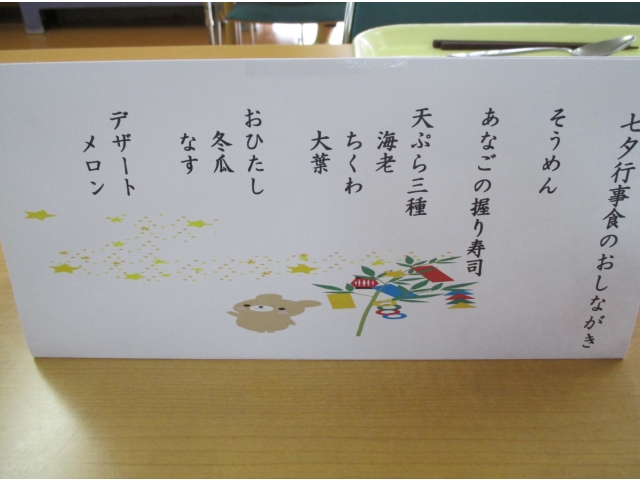 七夕行事食のおしながき
そうめん
あなごの握り寿司
天ぷら三種
海老
ちくわ
大葉
おひたし
冬瓜
なす
デザート
メロン